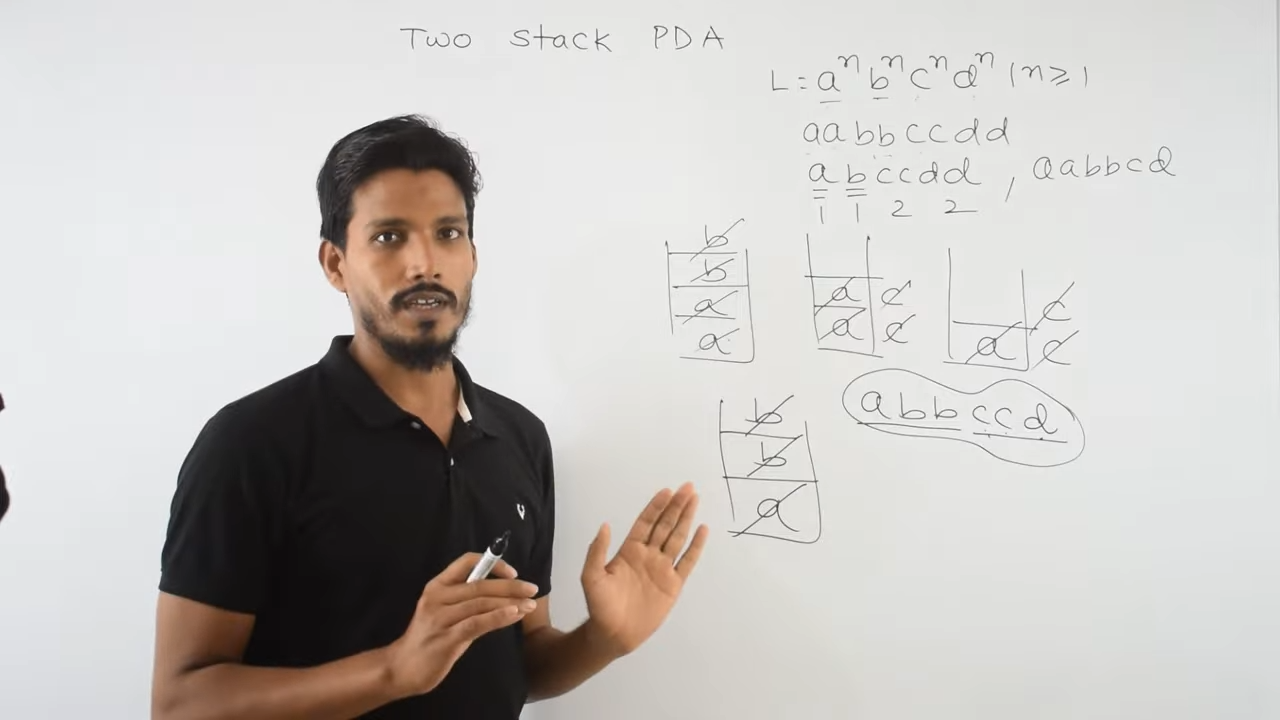 Two stack PDA
L = aⁿ bⁿ cⁿ dⁿ | n ≥ 1
aabbccdd
abccdd , aabbcd
1 1 2 2
b
b
a
a
a ¢
a ¢
c
a c
abbccd
b
b
a